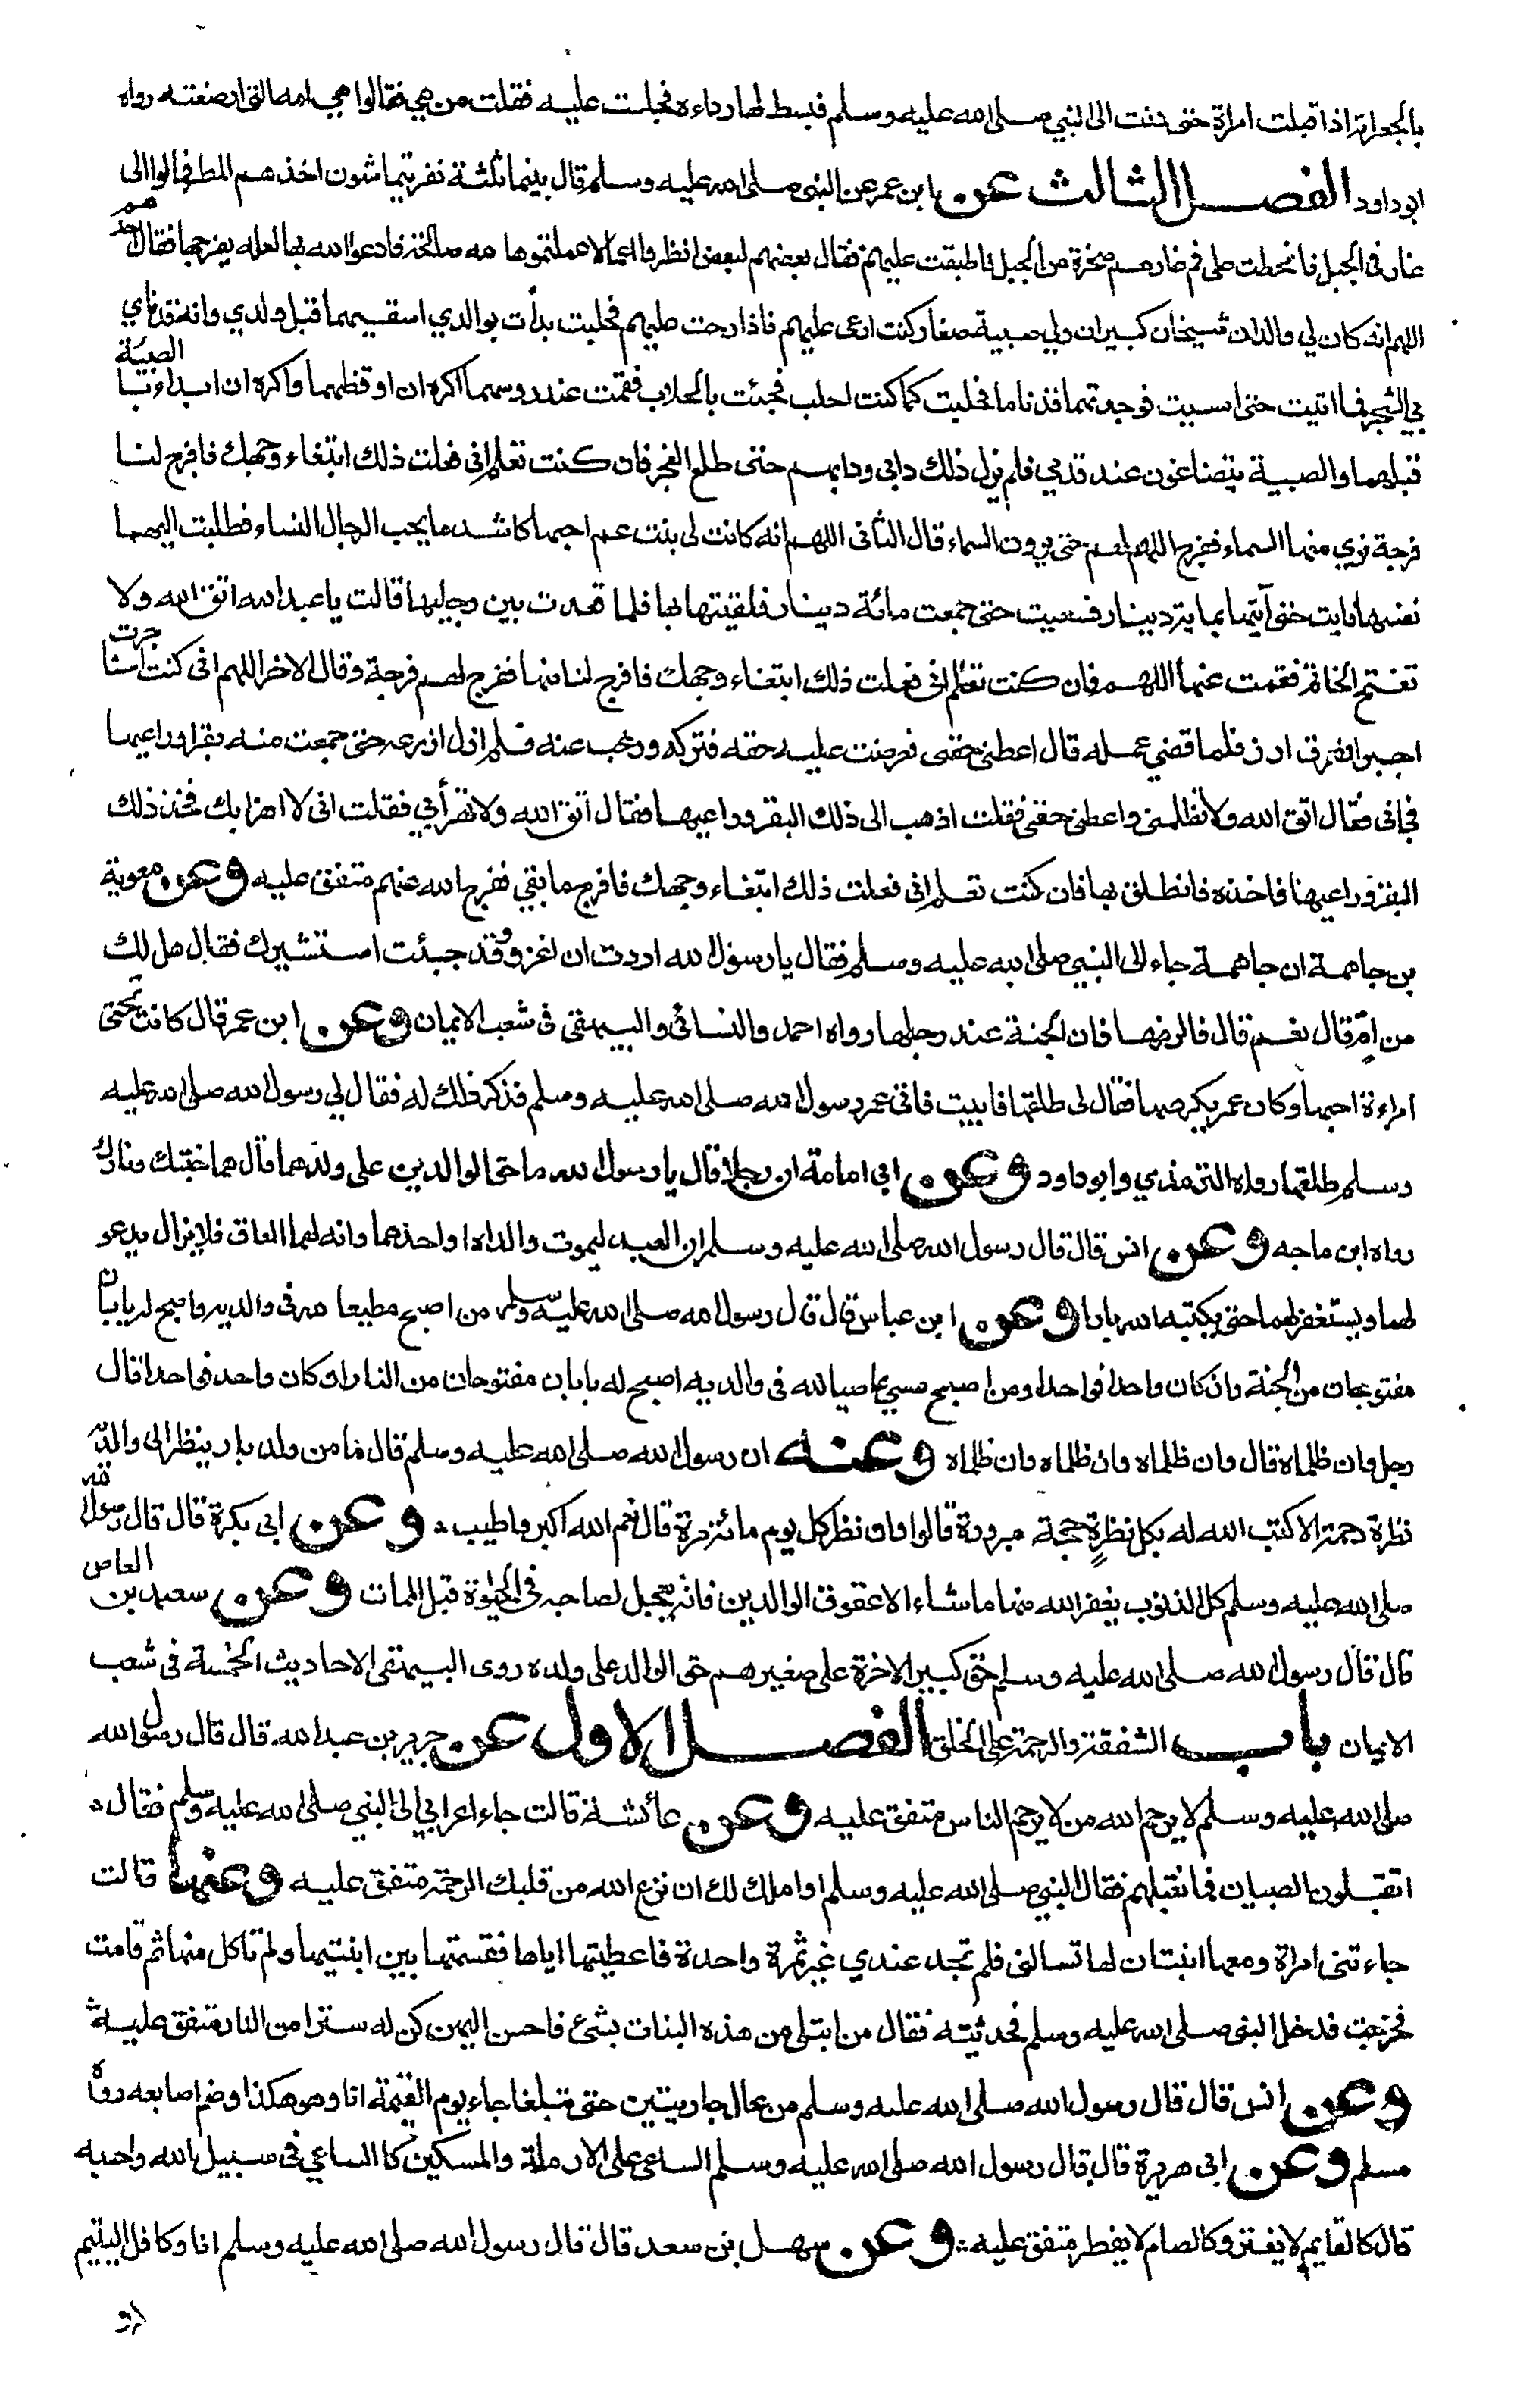 بالجعرانة اذا قبلت امراة حتى دنت الى النبي صلى الله عليه وسلم فبسط لها رداءه فجلست عليه فقلت من هي فقالوا هي امه التي ارضعته رواه
ابوداود الفصل الثالث عن ابن عمر عن النبي صلى الله عليه وسلم قال بينما ثلثة نفر يتماشون اخذهم المطر فمالوا الى
غار في الجبل فانحطت على فم غارهم صخرة من الجبل فاطبقت عليهم فقال بعضهم لبعض انظروا اعمالا عملتموها لله صالحة فادعوا الله بها لعله يفرجها فقال احدهم
اللهم انه كان لي والدان شيخان كبيران ولي صبية صغار كنت ارعى عليهم فاذا رحت عليهم فحلبت بدأت بوالدي اسقيهما قبل ولدي وانه قد ناي
بي الشجر فما اتيت حتى امسيت فوجدتهما قد ناما فحلبت كما كنت احلب فجئت بالحلاب فقمت عند روسهما اكره ان اوقظهما واكره ان ابداء بالصبية
قبلهما والصبية يتضاغون عند قدمي فلم يزل ذلك دابي ودابهم حتى طلع الفجر فان كنت تعلم اني فعلت ذلك ابتغاء وجهك فافرج لنا
فرجة نري منها السماء ففرج الله لهم حتى يرون السماء قال الثاني اللهم انه كانت لي بنت عم احبها كاشد ما يحب الرجال النساء فطلبت اليها
نفسها فابت حتى آتيها بماية دينار فسعيت حتى جمعت مائة دينار فلقيتها بها فلما قعدت بين رجليها قالت يا عبد الله اتق الله ولا
تفتح الخاتم فقمت عنها اللهم فان كنت تعلم اني فعلت ذلك ابتغاء وجهك فافرج لنا منها ففرج لهم فرجة وقال الاخر اللهم اني كنت استاجرت
اجيرا بفرق ارز فلما قضي عمله قال اعطني حقي فعرضت عليه حقه فتركه ورغب عنه فلم ازل ازرعه حتى جمعت منه بقرا وراعيها
فجاءني فقال اتق الله ولا تظلمني واعطني حقي فقلت اذهب الى ذلك البقر وراعيها فقال اتق الله ولا تهزأ بي فقلت اني لا اهزا بك فخذ ذلك
البقر وراعيها فاخذه فانطلق بها فان كنت تعلم اني فعلت ذلك ابتغاء وجهك فافرج ما بقي ففرج الله عنهم متفق عليه وعن معوية
بن جاهمة ان جاهمة جاء الى النبي صلى الله عليه وسلم فقال يا رسول الله اردت ان اغزو وقد جئت استشيرك فقال هل لك
من ام قال نعم قال فالزمها فان الجنة عند رجلها رواه احمد والنسائى والبيهقى فى شعب الايمان وعن ابن عمر قال كانت تحتى
امراءة احبها وكان عمر يكرهها فقال لى طلقها فابيت فاتى عمر رسول الله صلى الله عليه وسلم فذكر ذلك له فقال لي رسول الله صلى الله عليه
وسلم طلقها رواه الترمذي وابوداود وعن ابي امامة ان رجلا قال يا رسول الله ما حق الوالدين على ولدهما قال هما جنتك ونارك
رواه ابن ماجه وعن انس قال قال رسول الله صلى الله عليه وسلم ان العبد ليموت والداه او احدهما وانه لهما لعاق فلا يزال يدعو
لهما ويستغفر لهما حتى يكتبه الله بارا وعن ابن عباس قال قال رسول الله صلى الله عليه وسلم من اصبح مطيعا لله فى والديه اصبح له بابان
مفتوحان من الجنة وان كان واحدا فواحدا ومن اصبح عاصيا لله فى والديه اصبح له بابان مفتوحان من النار ان كان واحد فواحدا قال
رجل وان ظلماه قال وان ظلماه وان ظلماه وان ظلماه وعنه ان رسول الله صلى الله عليه وسلم قال ما من ولد بار ينظر الى والديه
نظرة رحمة الا كتب الله له بكل نظرة حجة مبرورة قالوا وان نظر كل يوم مائة مرة قال نعم الله اكبر واطيب وعن ابي بكرة قال قال رسول الله
صلى الله عليه وسلم كل الذنوب يغفر الله منها ما شاء الا عقوق الوالدين فانه يعجل لصاحبه فى الحيوة قبل الممات وعن سعيد بن العاص
قال قال رسول الله صلى الله عليه وسلم حق كبير الاخوة على صغيرهم حق الوالد على ولده روى البيهقى الاحاديث الخمسة فى شعب
الايمان باب الشفقة والرحمة على الخلق الفصل الاول عن جرير بن عبد الله قال قال رسول الله
صلى الله عليه وسلم لا يرحم الله من لا يرحم الناس متفق عليه وعن عائشة قالت جاء اعرابي الى النبي صلى الله عليه وسلم فقال
اتقبلون الصبيان فما نقبلهم فقال النبي صلى الله عليه وسلم اوا ملك لك ان نزع الله من قلبك الرحمة متفق عليه وعنها قالت
جاءتنى امراة ومعها ابنتان لها تسالنى فلم تجد عندي غير تمرة واحدة فاعطيتها اياها فقسمتها بين ابنتيها ولم تاكل منها ثم قامت
فخرجت فدخل النبى صلى الله عليه وسلم فحدثته فقال من ابتلي من هذه البنات بشيء فاحسن اليهن كن له سترا من النار متفق عليه
وعن انس قال قال رسول الله صلى الله عليه وسلم من عال جاريتين حتى تبلغا جاء يوم القيمة انا وهو هكذا وضم اصابعه رواه
مسلم وعن ابى هريرة قال قال رسول الله صلى الله عليه وسلم الساعى على الارملة والمسكين كالساعي فى سبيل الله واحسبه
قال كالقايم لا يفتر وكالصايم لا يفطر متفق عليه وعن سهل بن سعد قال قال رسول الله صلى الله عليه وسلم انا وكافل اليتيم